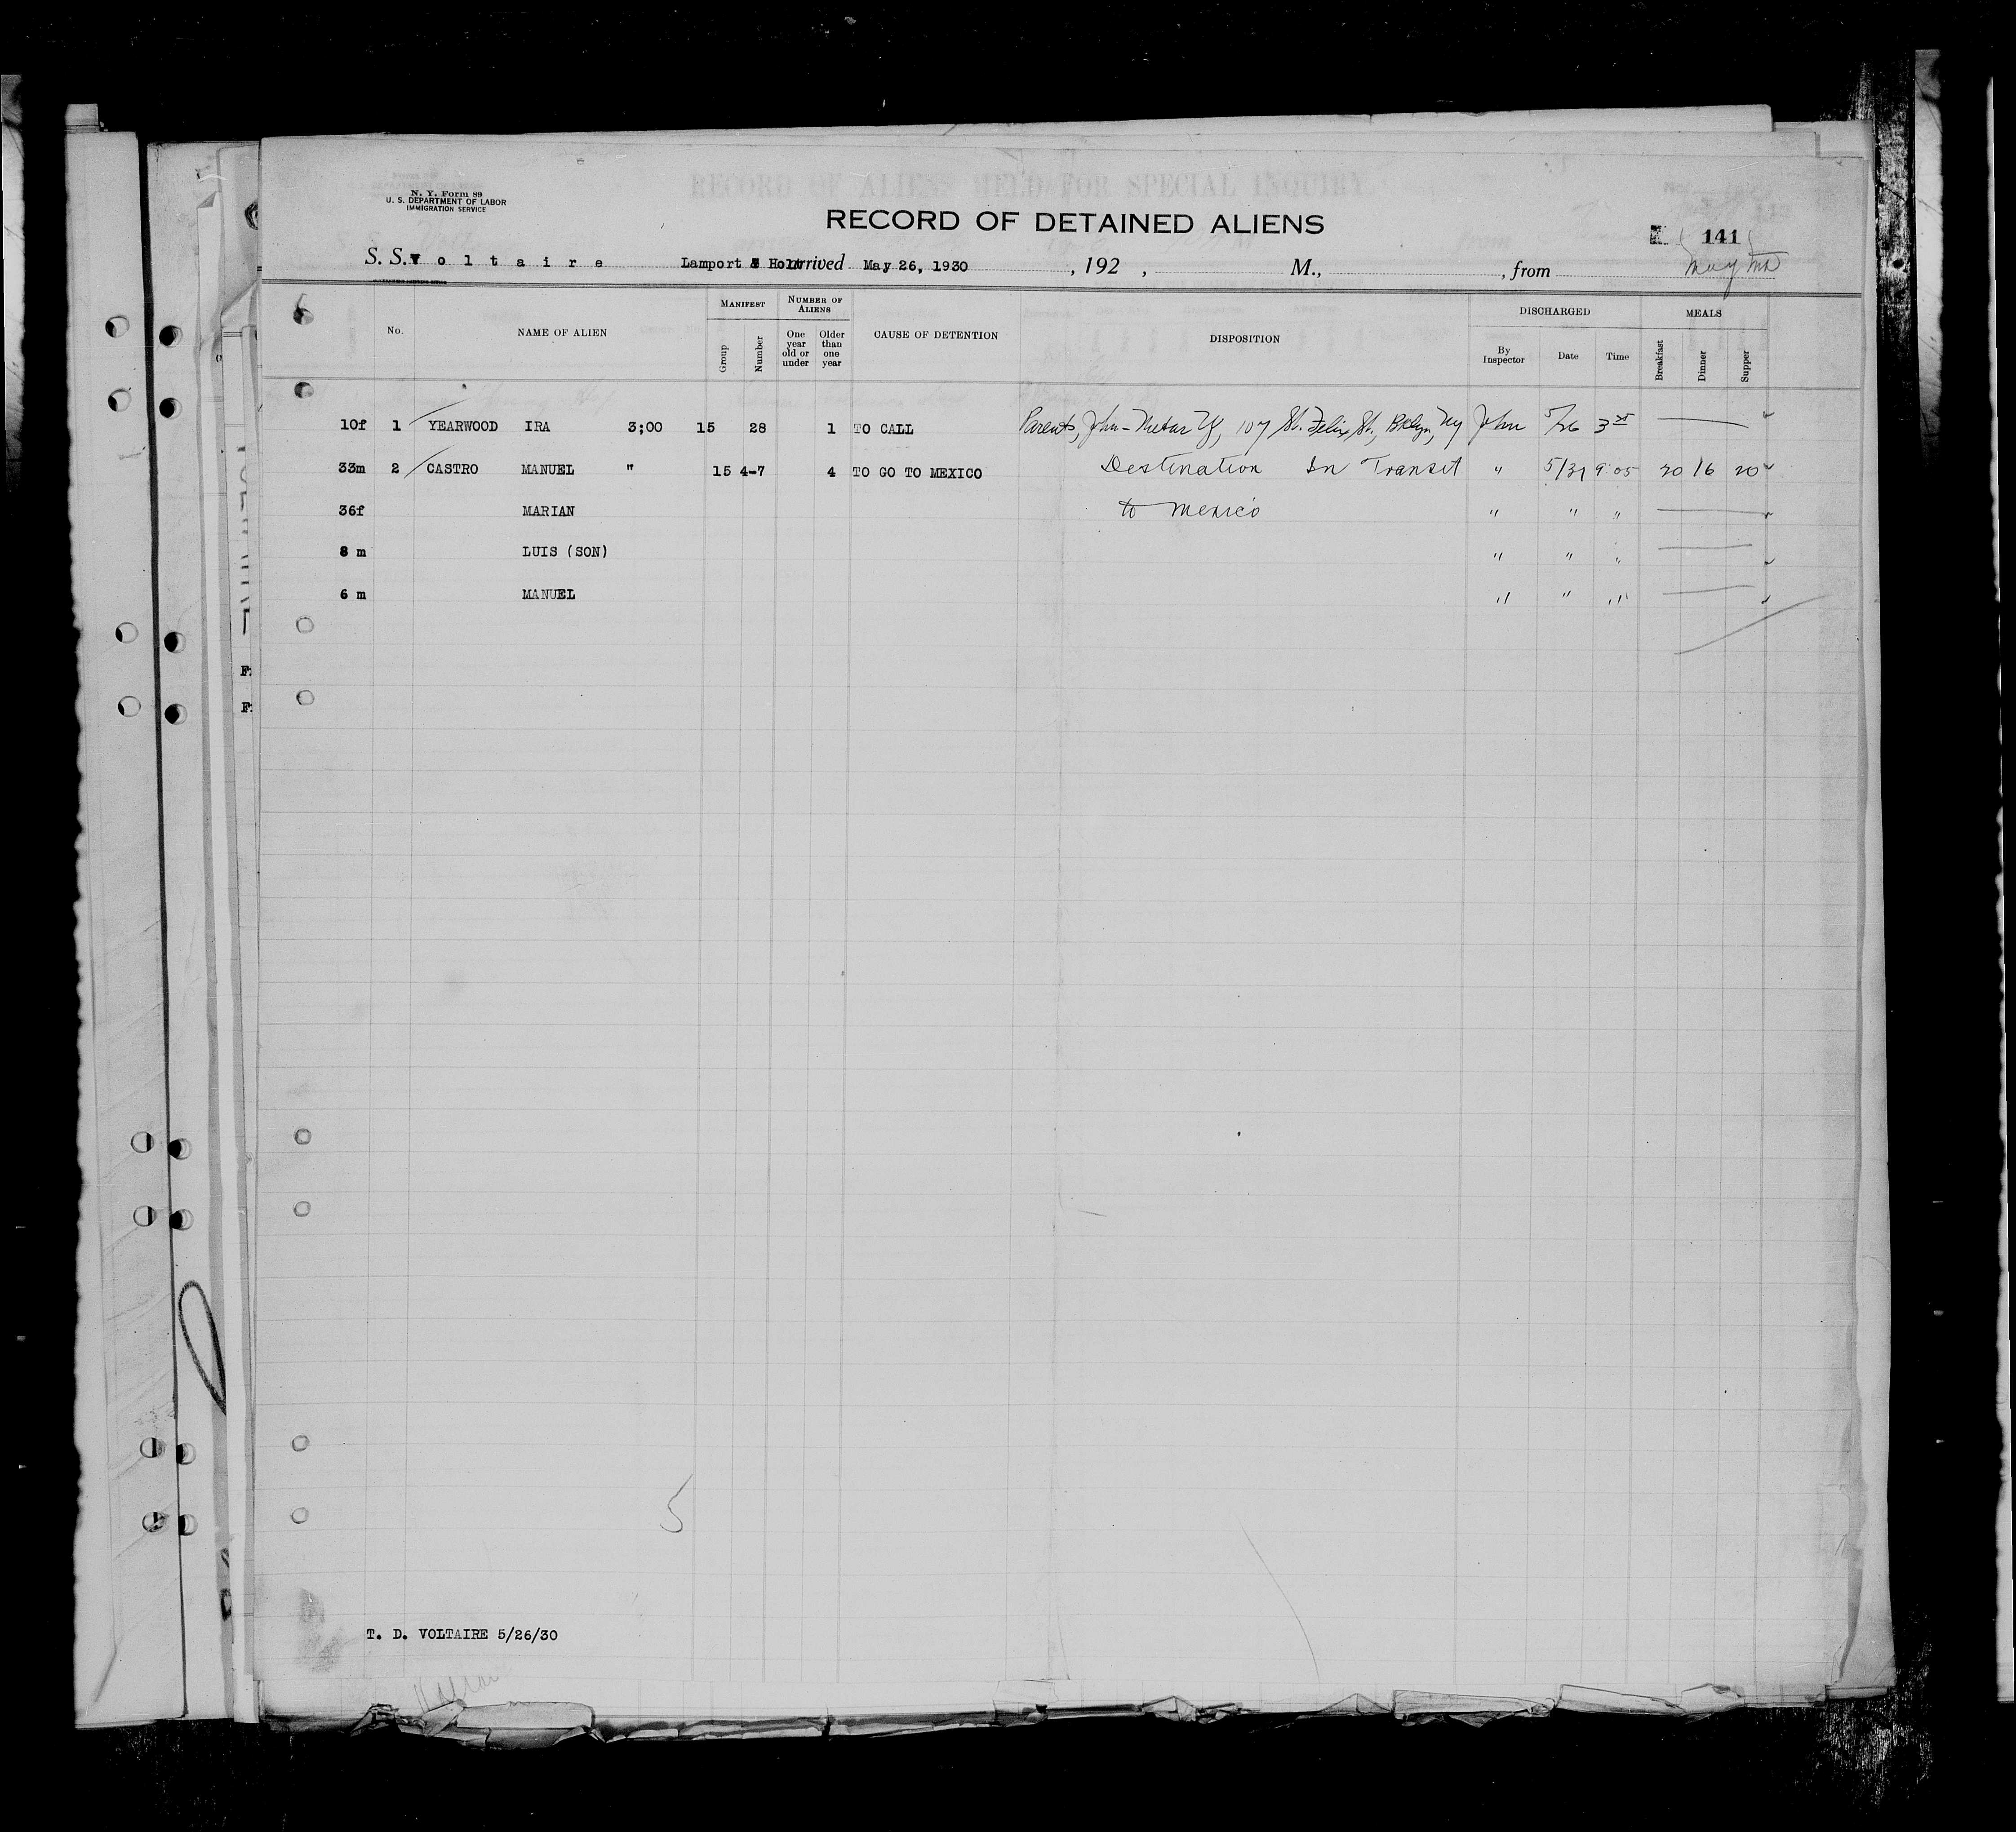 N. Y. Form 89
U. S. DEPARTMENT OF LABOR
IMMIGRATION SERVICE
RECORD OF ALIENS HELD FOR SPECIAL INQUIRY
RECORD OF DETAINED ALIENS
141
S. S. Voltaire Lamport & Holt arrived May 26, 1930, 192 , M., , from
No. NAME OF ALIEN MANIFEST Group Number NUMBER OF ALIENS One year old or under Older than one year CAUSE OF DETENTION DISPOSITION DISCHARGED By Inspector Date Time MEALS Breakfast Dinner Supper
10f 1 YEARWOOD IRA 3;00 15 28 1 TO CALL Parents, John - 107 St. Felix St., Bklyn, Ny John 5/26 3
33m 2 CASTRO MANUEL " 15 4-7 4 TO GO TO MEXICO Destination In Transit " 5/31 9:05 20 16 20
36f MARIAN to Mexico " " "
8 m LUIS (SON) " " "
6 m MANUEL " " "
F
F
5
T. D. VOLTAIRE 5/26/30